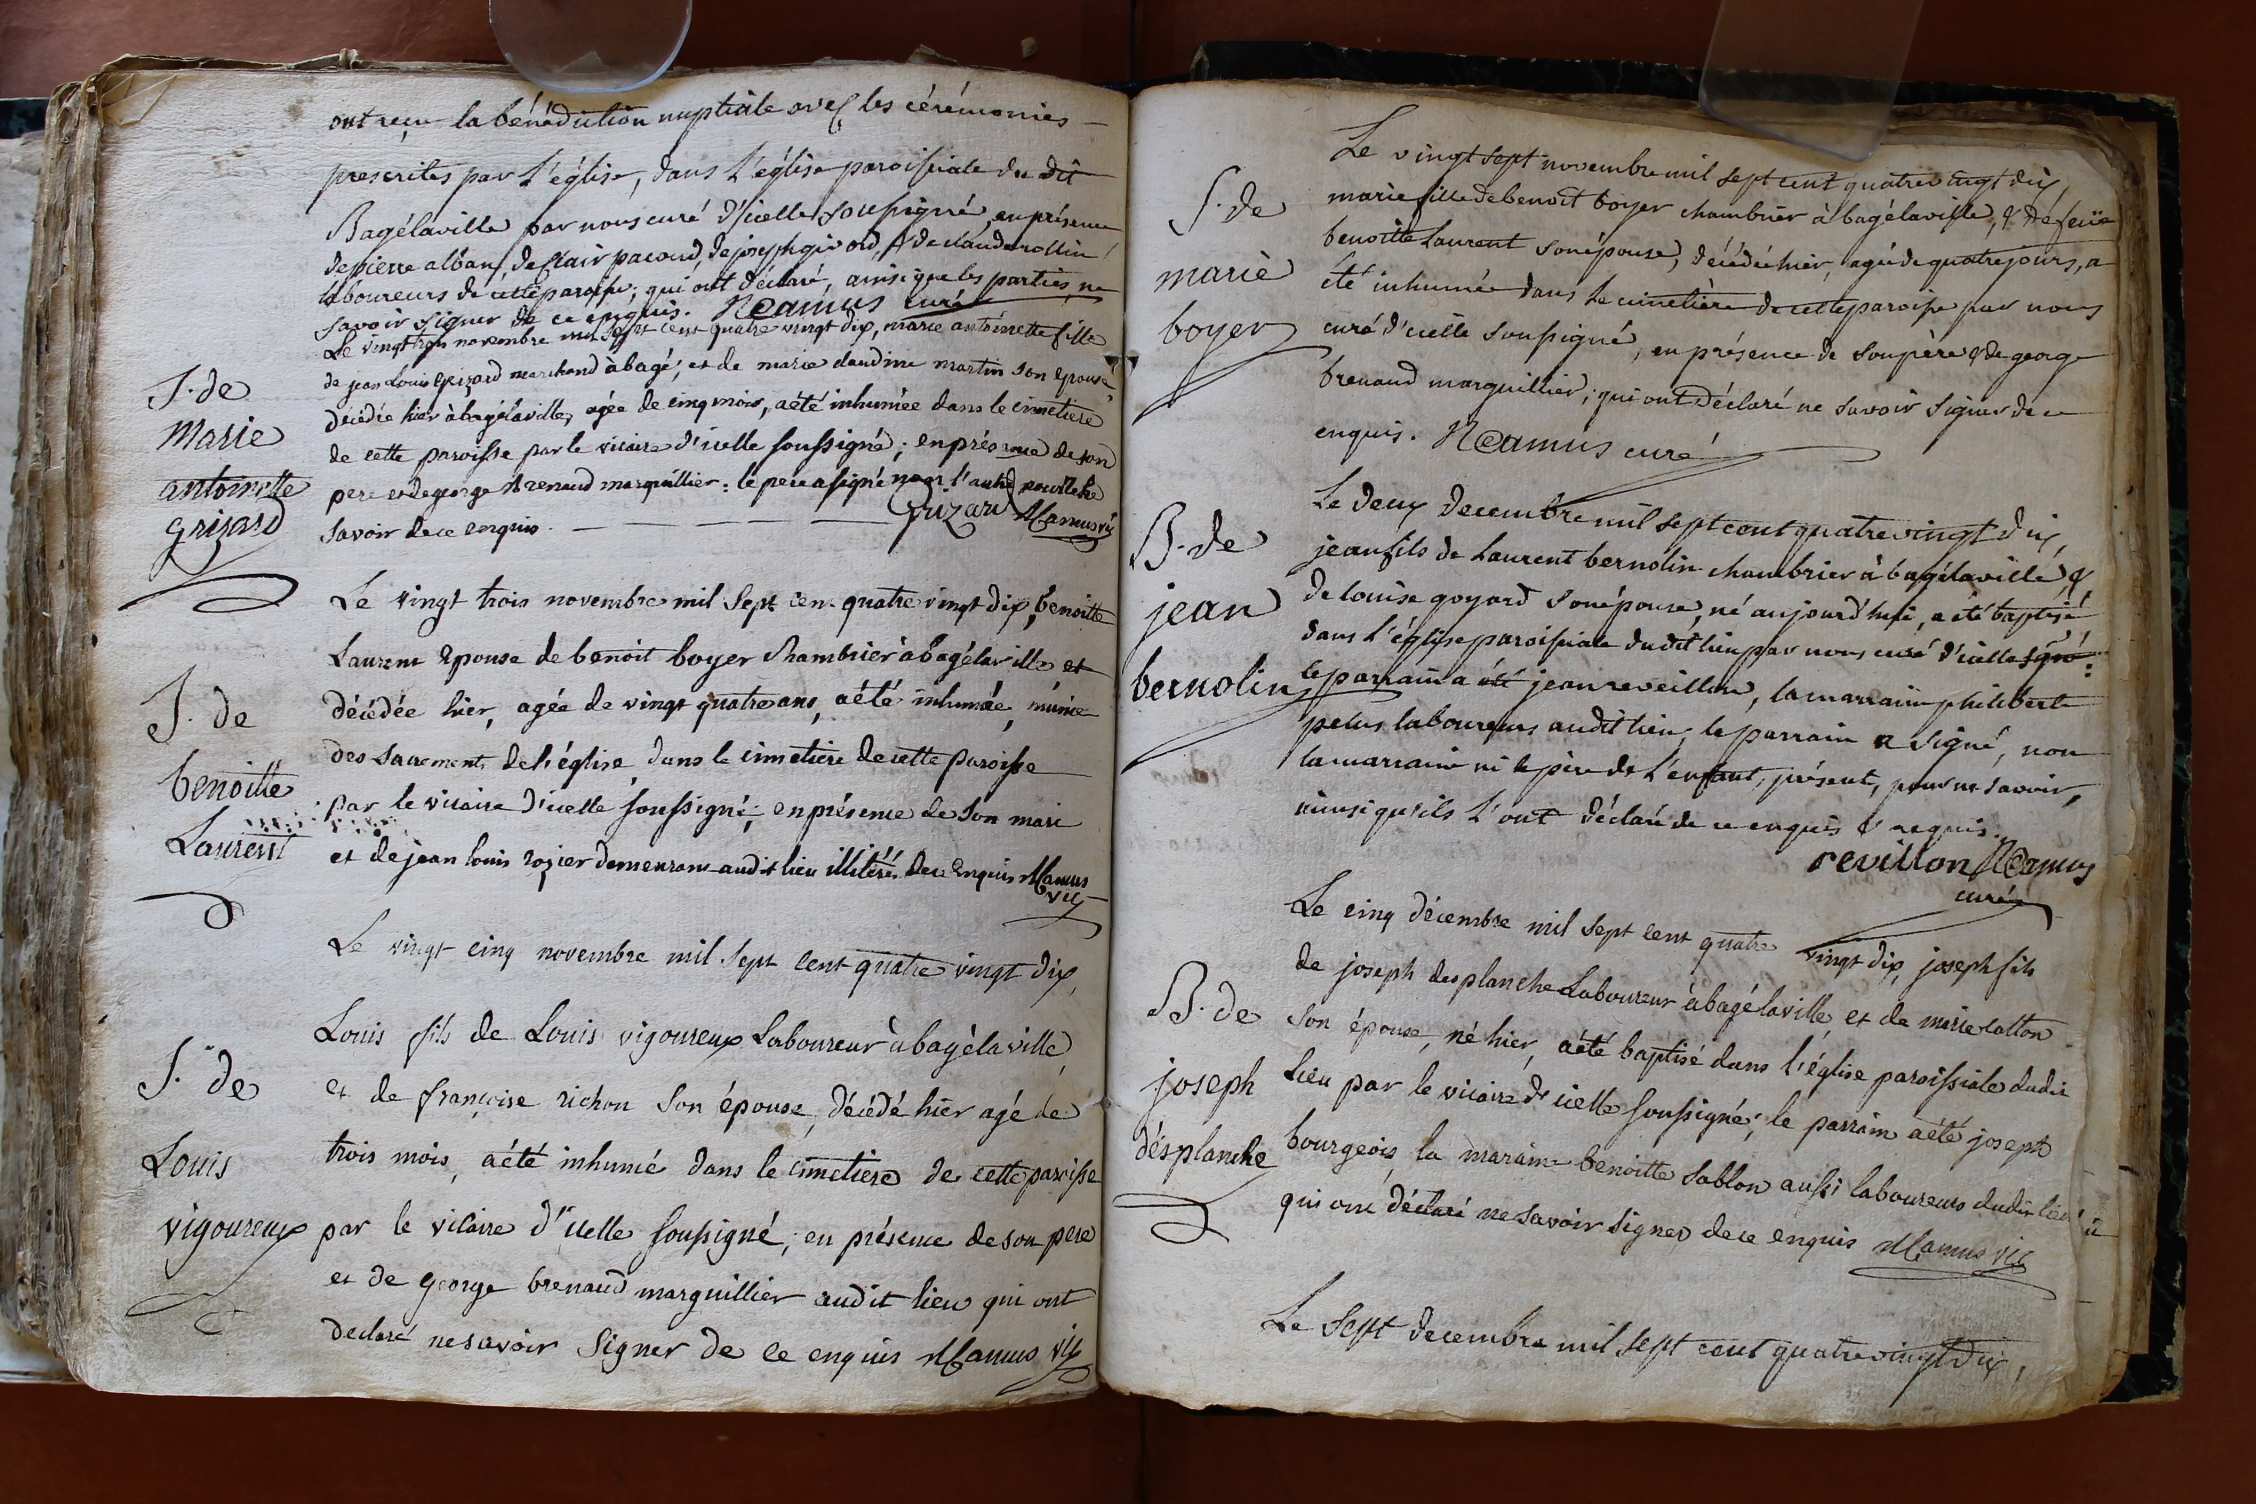 ont reçu la bénédiction nuptiale avec les cérémonies
prescrites par l'église, dans l'église paroissiale du dit
Bagélaville par nous curé d'icelle soussigné, en présence
de pierre alban, de clair pacoud, de joseph girord, & de claude rollin
laboureurs de cette paroisse; qui ont déclaré, ainsi que les parties, ne
savoir signer de ce enquis. Camus curé
Le vingt trois novembre mil sept cent quatre vingt dix, marie antoinette fille
de jean Louis Grizard marchand à bagé, et de marie claudine martin son epouse
décédée hier à bagélaville, agée de cinq mois, a été inhumée dans le cimetiere
de cette paroisse par le vicaire d'icelle soussigné; en présence de son
pere et de george brenaud marguillier: le pere a signé non l'autre pour ne le
savoir de ce enquis. Grizard Camus vic
J. de
Marie
antoinette
grizard
Le vingt trois novembre mil sept cent quatre vingt dix, benoitte
Laurent epouse de benoit boyer chambrier à bagélaville et
décédée hier, agée de vingt quatre ans, a été inhumée, munie
des sacrements de l'église, dans le cimetiere de cette paroisse
par le vicaire d'icelle soussigné; en présence de son mari
et de jean louis rozier demeurans audit lieu illiterés de ce enquis Camus
vic
J. de
benoitte
Laurent
Le vingt cinq novembre mil sept cent quatre vingt dix,
Louis fils de Louis vigoureux Laboureur à bagélaville
et de françoise richon son épouse, décédé hier agé de
trois mois, a été inhumé dans le cimetiere de cette paroisse
par le vicaire d'icelle soussigné; en présence de son pere
et de george brenaud marguillier audit lieu qui ont
declaré ne savoir signer de ce enquis Camus vic
J. de
Louis
vigoureux
Le vingt sept novembre mil sept cent quatre vingt dix,
marie fille de benoit boyer chambrier à bagélaville, & de feüe
benoitte Laurent son épouse, décédée hier, agée de quatre jours, a
été inhumée dans le cimetière de cette paroisse par nous
curé d'icelle soussigné, en présence de son père & de george
brenaud marguillier; qui ont déclaré ne savoir signer de ce
enquis. Camus curé
J. de
marie
boyer
Le deux decembre mil sept cent quatre vingt dix,
jean fils de Laurent bernolin chambrier à bagélaville, &
de louise goyard son épouse, né aujourd'hui, a été baptisé
dans l'église paroissiale dudit lieu par nous curé d'icelle signé:
le parrain a été jean reveillon, la marraine philiberte
pelus laboureurs audit lieu; le parrain a signé, non
la marraine ni le père de l'enfant, présent, pour ne savoir,
ainsi qu'ils l'ont déclaré de ce enquis & requis.
revillon Camus
curé
B. de
jean
bernolin
Le cinq décembre mil sept cent quatre vingt dix, joseph fils
de joseph desplanche Laboureur à bagélaville et de marie catton
son épouse, né hier, a été baptisé dans l'église paroissiale dudit
Lieu par le vicaire d'icelle soussigné; le parrain a été joseph
bourgeois, la maraine benoitte sablon aussi laboureurs dudit lieu
qui ont déclaré ne savoir signer de ce enquis Camus vic
B. de
joseph
désplanche
Le sept decembre mil sept cent quatre vingt dix,